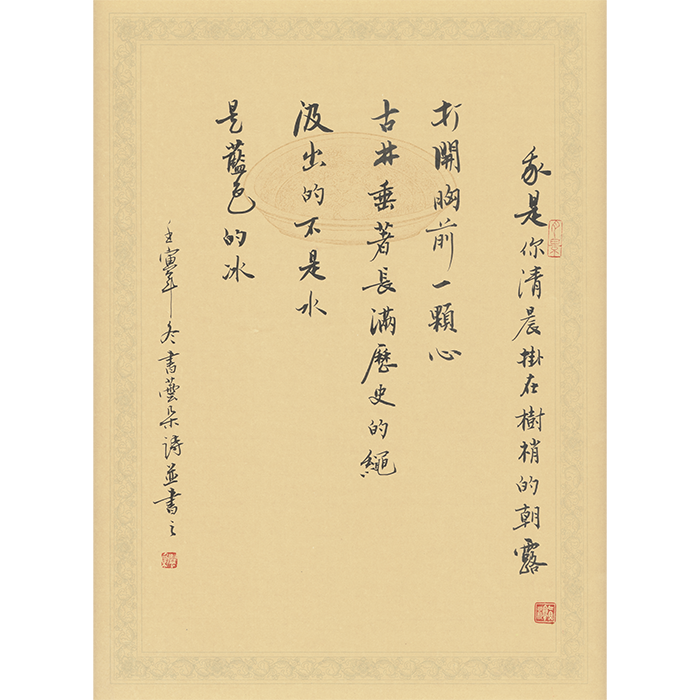 我是你清晨掛在樹梢的朝露
打開胸前一顆心
古井垂著長滿歷史的繩
汲出的不是水
是藍色的冰
壬寅年冬書薹朵詩並書之